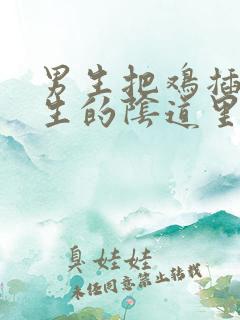 男生把鸡插
生的陰道里
臭娃娃
未经同意禁止转载